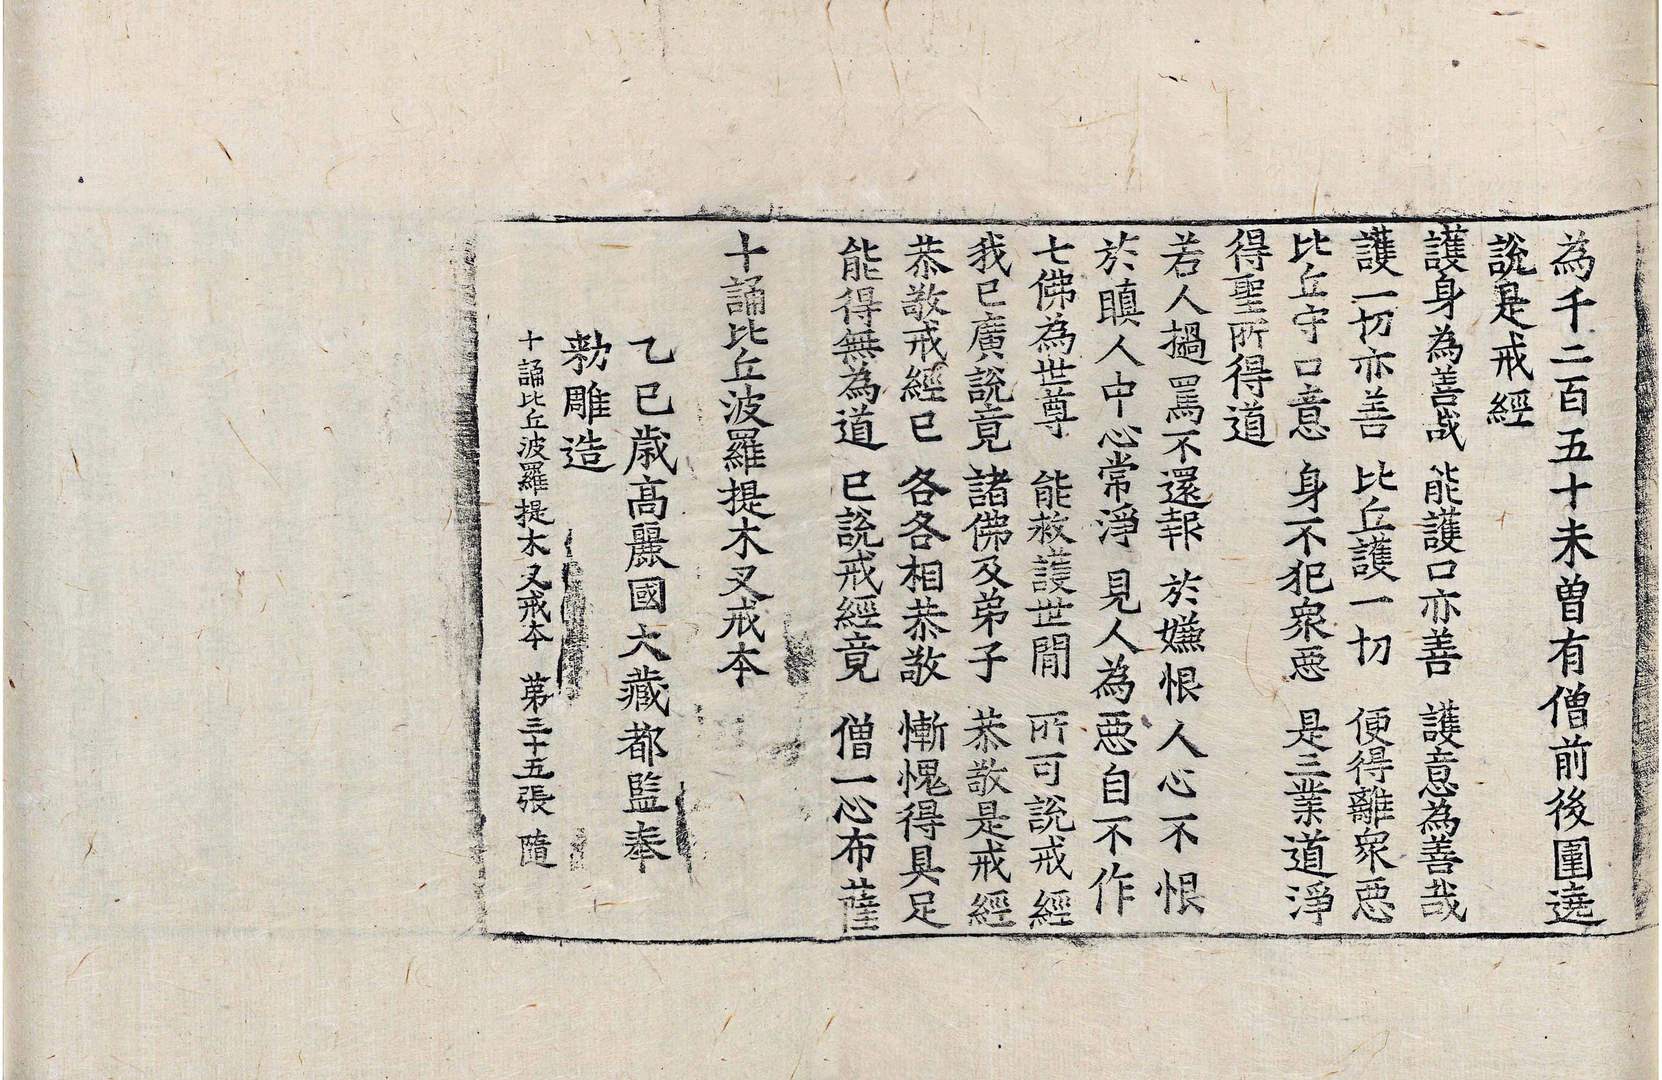 為千二百五十未曽有僧前後圍遶
說是戒經
護身為善哉 能護口亦善 護意為善哉
護一切亦善 比丘護一切 便得離衆惡
比丘守口意 身不犯衆惡 是三業道淨
得聖所得道
若人撾罵不還報 於嫌恨人心不恨
於瞋人中心常淨 見人為惡自不作
七佛為世尊 能救護世間 所可說戒經
我已廣說竟 諸佛及弟子 恭敬是戒經
恭敬戒經已 各各相恭敬 慚愧得具足
能得無為道 已說戒經竟 僧一心布薩
十誦比丘波羅提木叉戒本
乙巳歲高麗國大藏都監奉
勑雕造
十誦比丘波羅提木叉戒本 第三十五張 隨